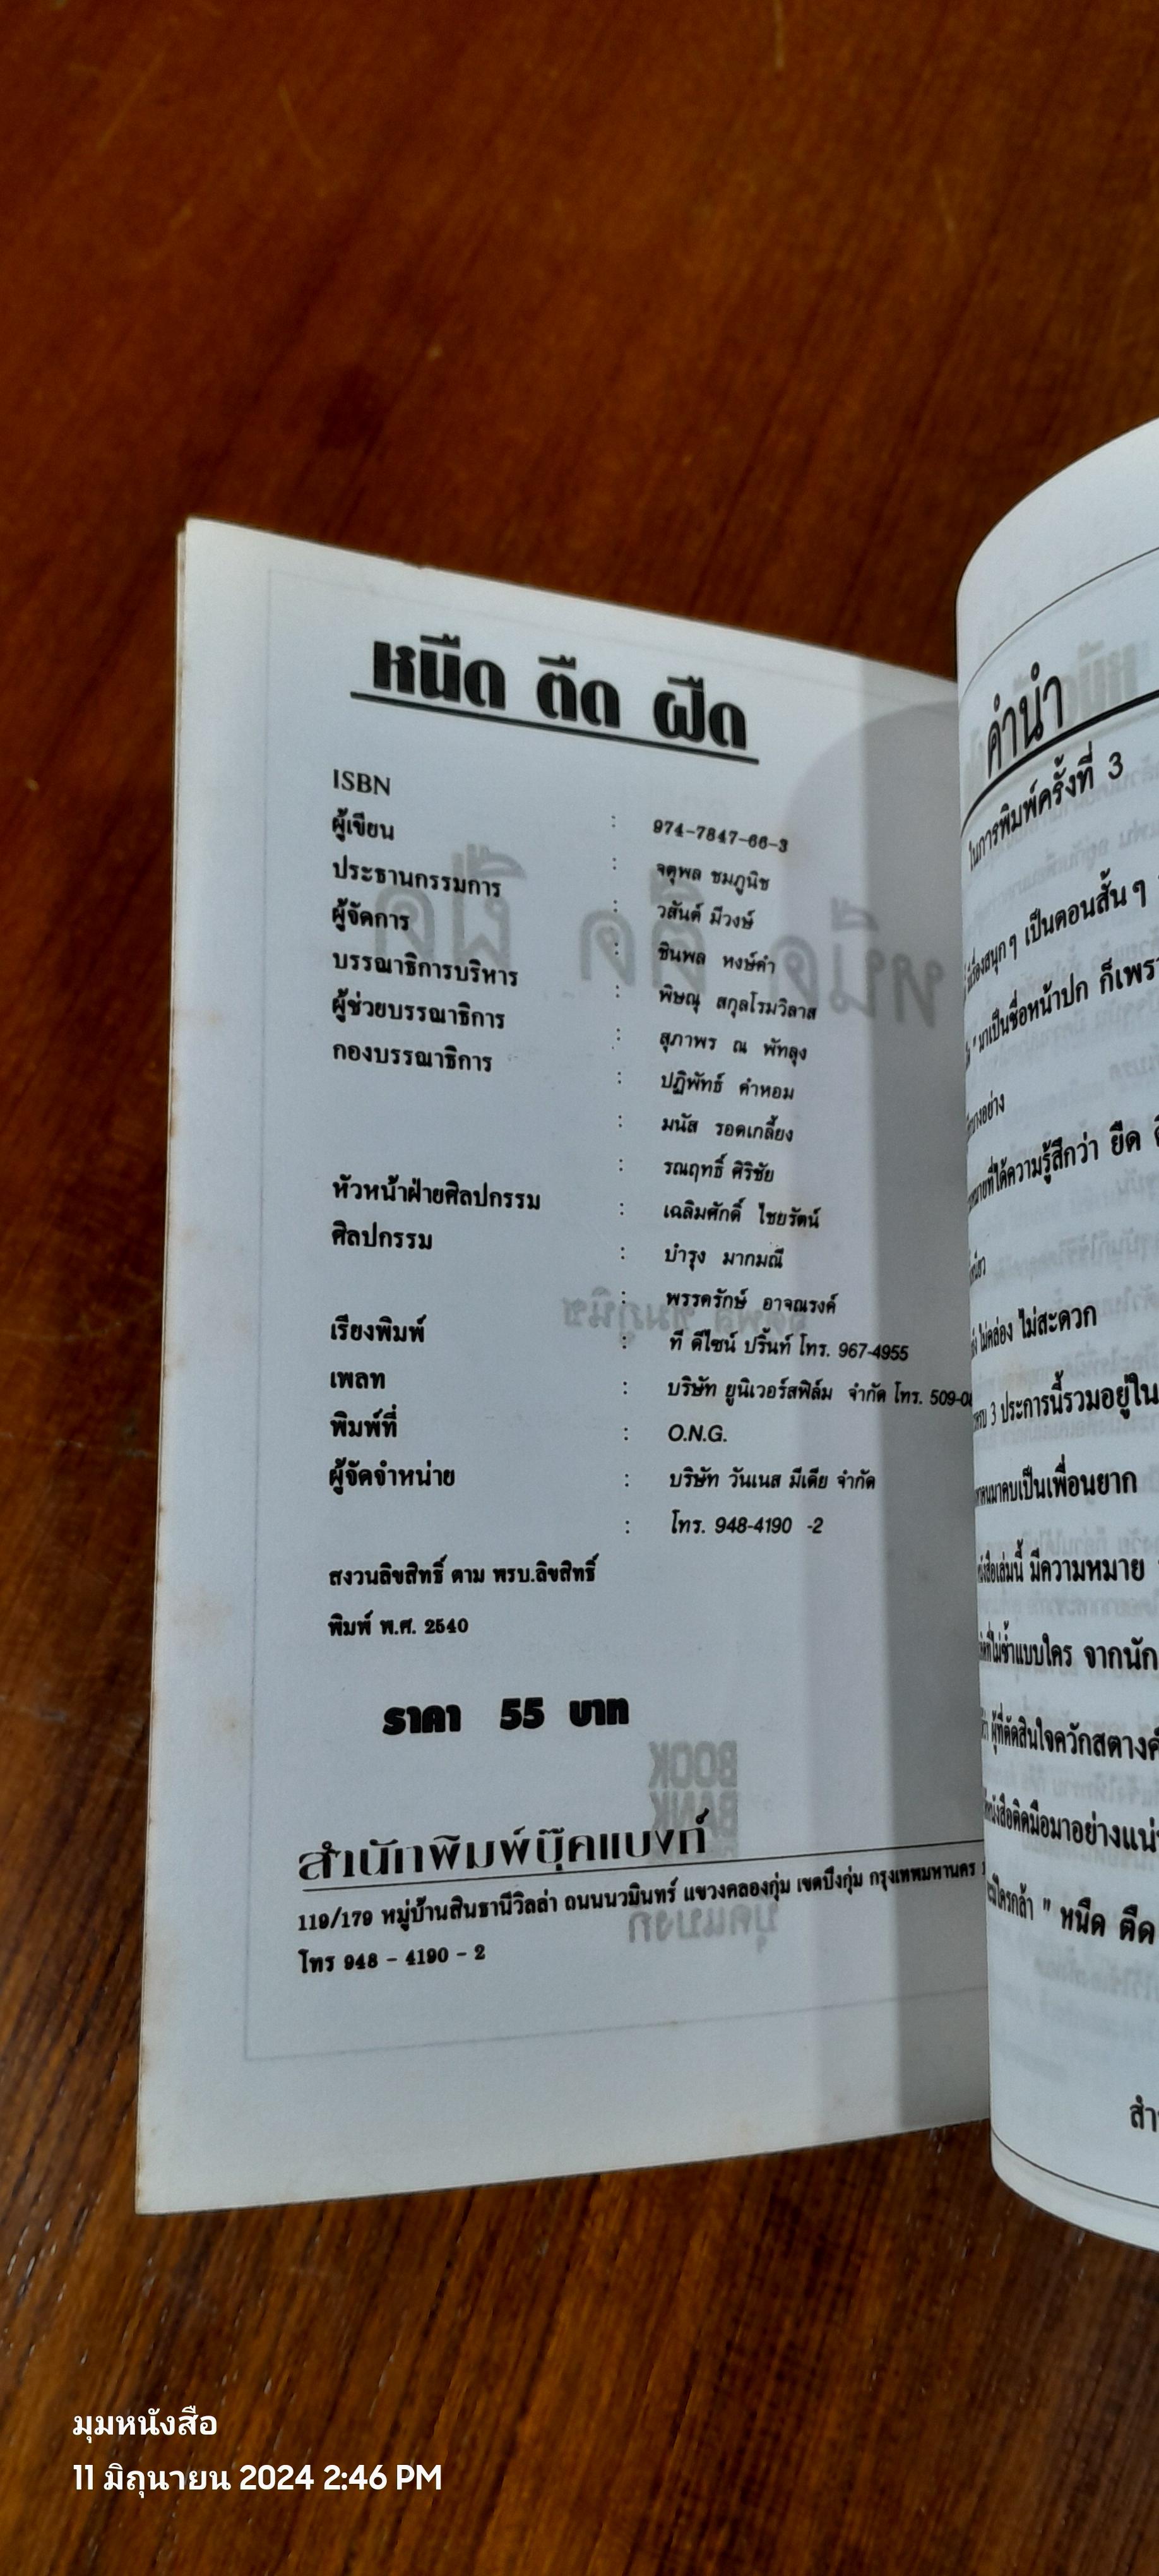 หนืด ตืด ฝืด
ISBN : 974-7847-66-3
ผู้เขียน : จตุพล ชมภูนิช
ประธานกรรมการ : วสันต์ มีวงษ์
ผู้จัดการ : ชินพล หงษ์คำ
บรรณาธิการบริหาร : พิษณุ สกุลโรมวิลาส
ผู้ช่วยบรรณาธิการ : สุภาพร ณ พัทลุง
กองบรรณาธิการ : ปฏิพัทธ์ คำหอม
: มนัส รอดเกลี้ยง
: รณฤทธิ์ ศิริชัย
หัวหน้าฝ่ายศิลปกรรม : เฉลิมศักดิ์ ไชยรัตน์
ศิลปกรรม : บำรุง มากมณี
: พรรครักษ์ อาจณรงค์
เรียงพิมพ์ : ที ดีไซน์ ปริ้นท์ โทร. 967-4955
เพลท : บริษัท ยูนิเวอร์สฟิล์ม จำกัด โทร. 509-0
พิมพ์ที่ : O.N.G.
ผู้จัดจำหน่าย : บริษัท วันเนส มีเดีย จำกัด
: โทร. 948-4190 -2
สงวนลิขสิทธิ์ ตาม พรบ.ลิขสิทธิ์
พิมพ์ พ.ศ. 2540
ราคา 55 บาท
สำนักพิมพ์บุ๊คแบงก์
119/179 หมู่บ้านสินธานีวิลล่า ถนนนวมินทร์ แขวงคลองกุ่ม เขตบึงกุ่ม กรุงเทพมหานคร
โทร 948 - 4190 - 2
คำนำ
ในการพิมพ์ครั้งที่ 3
เรื่องสนุก ๆ เป็นตอนสั้น ๆ
" มาเป็นชื่อหน้าปก ก็เพรา
บางอย่าง
ที่ได้ความรู้สึกว่า ยืด
ไม่คล่อง ไม่สะดวก
3 ประการนี้รวมอยู่ใน
คนมาคบเป็นเพื่อนยาก
หนังสือเล่มนี้ มีความหมาย
ที่ไม่ซ้ำแบบใคร จากนัก
ผู้ที่ตัดสินใจควักสตางค์
หนังสือติดมือมาอย่างแน่
ใครกล้า " หนืด ตืด
สำ
มุมหนังสือ
11 มิถุนายน 2024 2:46 PM